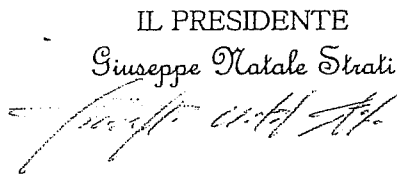 IL PRESIDENTE
Giuseppe Natale Strati